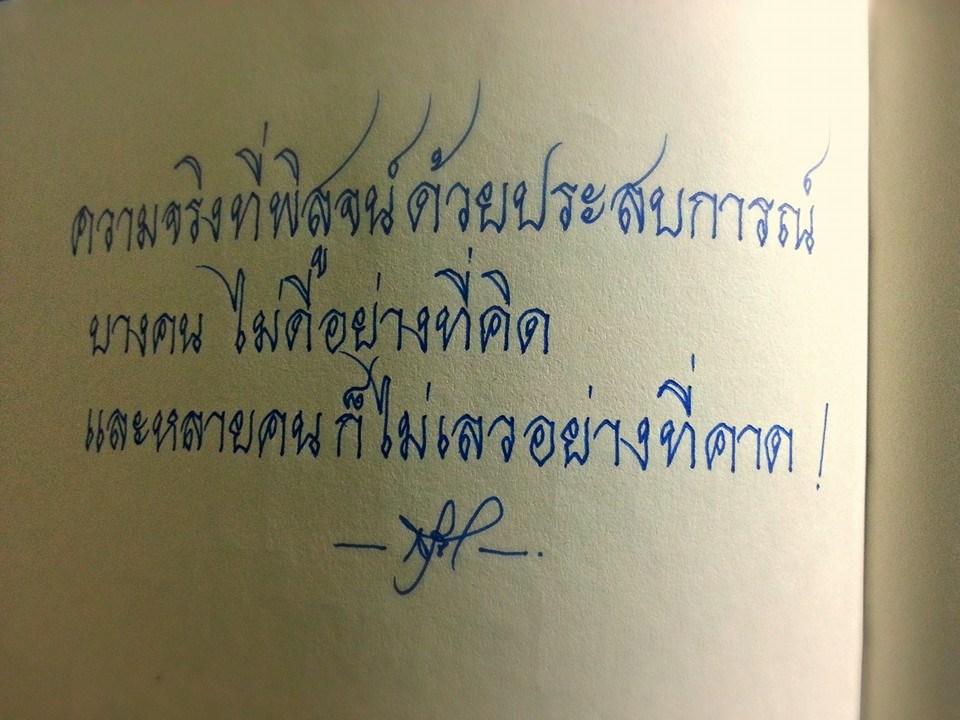 ความจริงที่พิสูจน์ด้วยประสบการณ์
บางคน ไม่ดีอย่างที่คิด
และหลายคนก็ไม่เลวอย่างที่คาด!